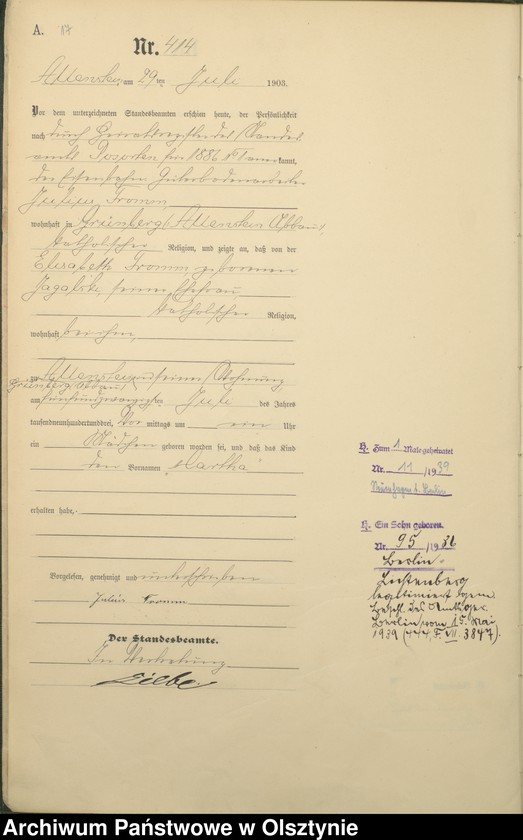 A. 87
Nr. 414
Allenstein, am 29ten Juli 1903.
Vor dem unterzeichneten Standesbeamten erschien heute, der Persönlichkeit
nach durch Heiratsregister des Standes-
amts für 1886 anerkannt,
der Eisenbahn Güterbodenarbeiter
Julius Fromm
wohnhaft in Grünberg/Allenstein Abbau,
katholischer Religion, und zeigte an, daß von der
Elisabeth Fromm geborenen
Jagalski, seiner Ehefrau,
katholischer Religion,
wohnhaft bei ihm,
zu Allenstein in seiner Wohnung
Grünberg Abbau,
am fünfundzwanzigsten Juli des Jahres
tausendneunhundertunddrei, Vor mittags um ein Uhr
ein Mädchen geboren worden sei, und daß das Kind
den Vornamen Martha
erhalten habe.
Vorgelesen, genehmigt und unterschrieben
Julius Fromm
Der Standesbeamte.
In Vertretung
H. Zum 1 Male geheiratet
Nr. 11/1939
Neuenhagen b. Berlin
H. Ein Sohn geboren.
Nr. 95/1936
Berlin-
Lichtenberg
legitimiert gem.
Beschl. des Amtsger.
Berlin vom 15. Mai
1939 (444. F. VII. 3847).
Archiwum Państwowe w Olsztynie